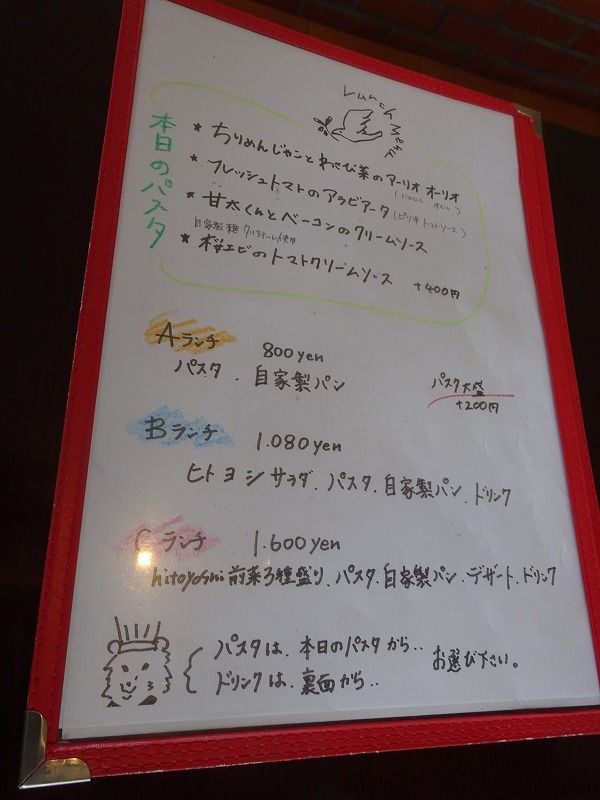 Lunch Menu
本日のパスタ
★ ちりめんじゃことわさび菜のアーリオオーリオ
★ フレッシュトマトのアラビアータ
(ピリ辛トマトソース)
★ 甘太くんとベーコンのクリームソース
自家製麺
★ 桜エビのトマトクリームソース +400円
Aランチ 800yen
パスタ.自家製パン
パスタ大盛
+200円
Bランチ 1.080yen
ヒトヨシサラダ.パスタ.自家製パン.ドリンク
Cランチ 1.600yen
hitoyoshi前菜3種盛り.パスタ.自家製パン.デザート.ドリンク
パスタは、本日のパスタから..
ドリンクは、裏面から..
お選び下さい。